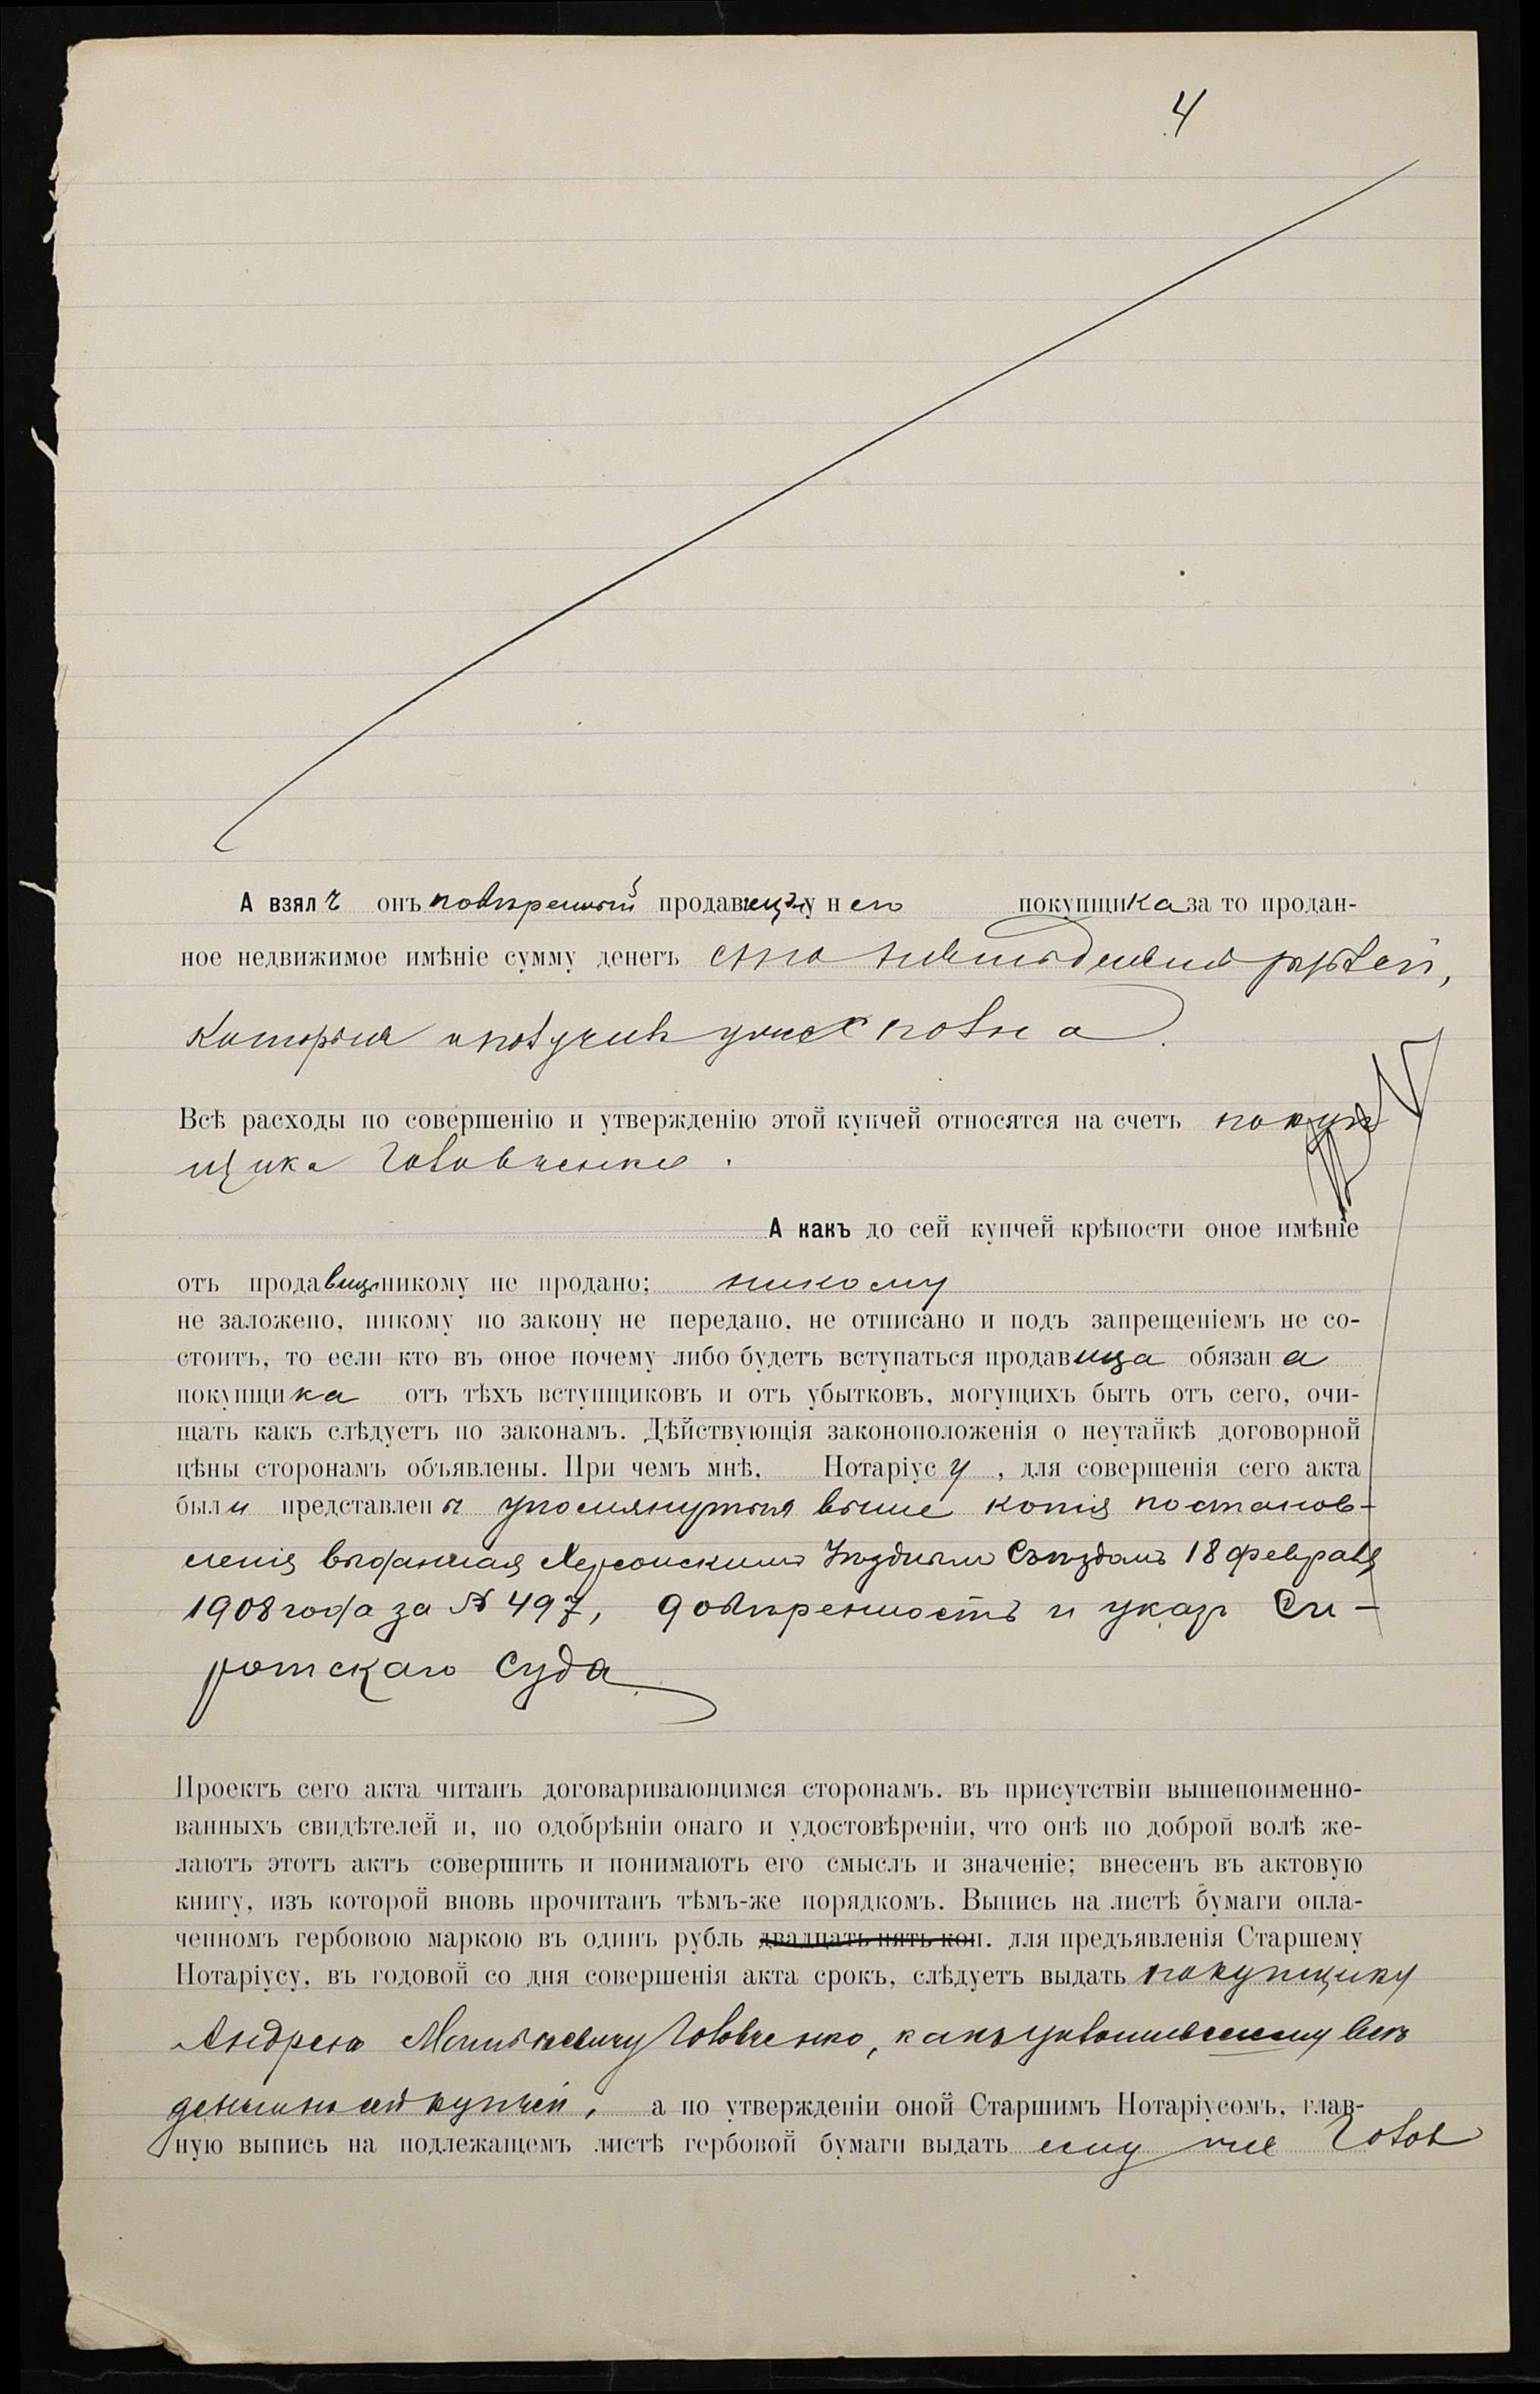 4
А взялъ онъ повѣренный продавицы у него покупщика за то продан-
ное недвижимое имѣніе сумму денегъ сто рублей,
которыя и получилъ уже сполна
Всѣ расходы по совершенію и утвержденію этой купчей относятся на счетъ покуп
щика Головченко.
А какъ до сей купчей крѣпости оное имѣніе
отъ продавицы никому не продано; никому
не заложено, никому по закону не передано, не отписано и подъ запрещеніемъ не со-
стоитъ, то если кто въ оное почему либо будетъ вступаться продавица обязана
покупщика отъ тѣхъ вступщиковъ и отъ убытковъ, могущихъ быть отъ сего, очи-
щать какъ слѣдуетъ по законамъ. Дѣйствующія законоположенія о неутайкѣ договорной
цѣны сторонамъ объявлены. При чемъ мнѣ, Нотаріусу, для совершенія сего акта
были представлены упомянутыя выше копія постанов-
ленія выданная Херсонскимъ Уѣзднымъ Съѣздомъ 18 февраля
1908 года за № 497, довѣренность и указъ Си-
ротскаго Суда
Проектъ сего акта читанъ договаривающимся сторонамъ, въ присутствіи вышепоименно-
ванныхъ свидѣтелей и, по одобрѣніи онаго и удостовѣреніи, что онѣ по доброй волѣ же-
лаютъ этотъ актъ совершить и понимаютъ его смыслъ и значеніе; внесенъ въ актовую
книгу, изъ которой вновь прочитанъ тѣмъ-же порядкомъ. Выпись на листѣ бумаги опла-
ченномъ гербовою маркою въ одинъ рубль двадцать пять коп. для предъявленія Старшему
Нотаріусу, въ годовой со дня совершенія акта срокъ, слѣдуетъ выдать покупщику
Андрею Головченко, какъ уплатившему всѣ
деньги по сей купчей, а по утвержденіи оной Старшимъ Нотаріусомъ, глав-
ную выпись на подлежащемъ листѣ гербовой бумаги выдать ему же Голов